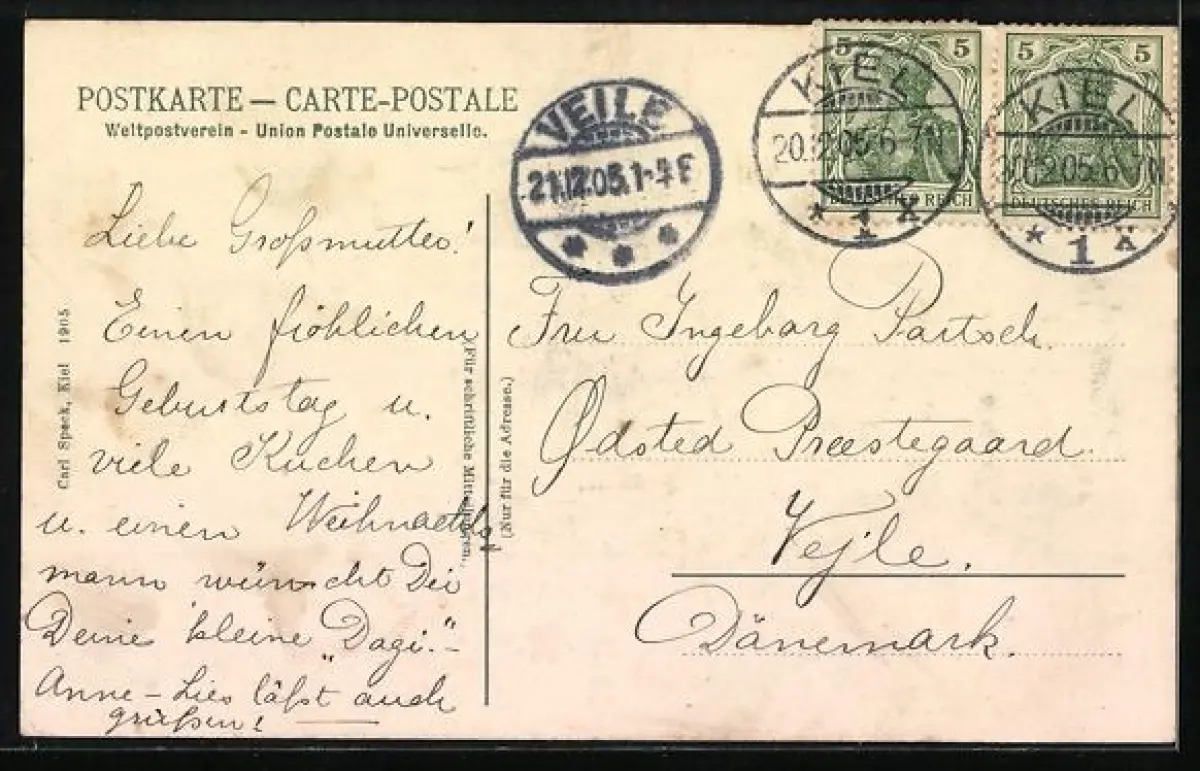 POSTKARTE — CARTE-POSTALE
Weltpostverein - Union Postale Universelle.
VEJLE
21.12.05.1-4 E
5 5
DEUTSCHES REICH
KIEL
20.12.05.6-7N
* 1 x
5 5
DEUTSCHES REICH
KIEL
20.12.05.6-7N
* 1 x
Liebe Großmutter!
Einen fröhlichen
Geburtstag u.
viele Kuchen
u. einen Weihnachts
mann wünscht Dir
Deine kleine „Dagi."-
Anne-Lies läßt auch
grüßen!
Carl Speck, Kiel 1905
Für schriftliche Mitteilungen.
(Nur für die Adresse.)
Frau Ingeborg Partsch.
Ødsted Præstegaard.
Vejle.
Dänemark.